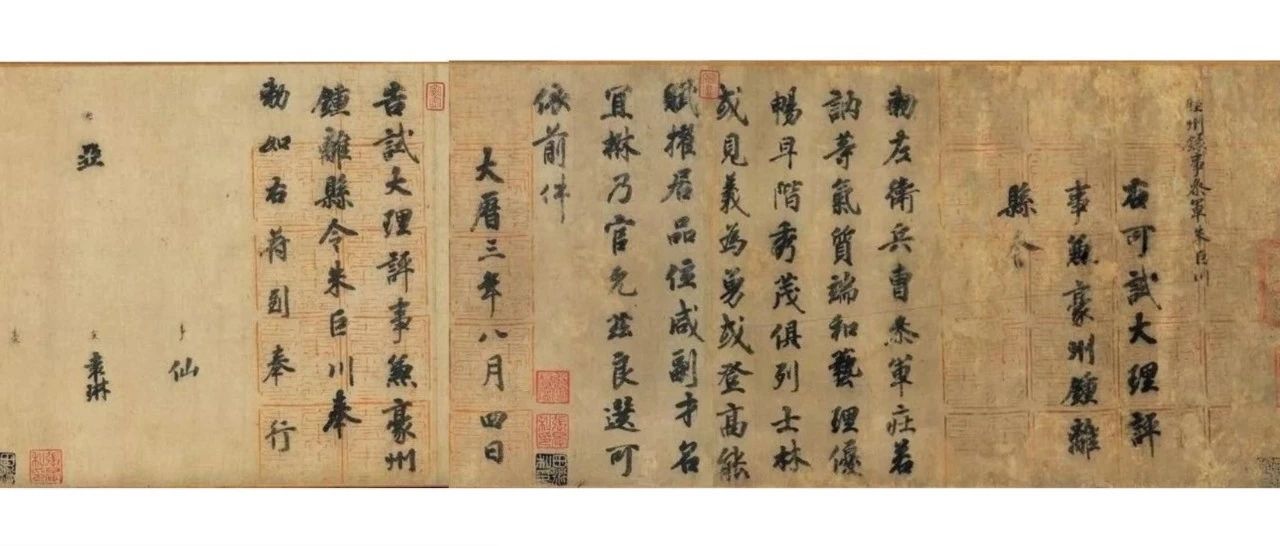 睦州錄事參軍朱巨川
右可試大理評
事兼豪州鍾離
縣令
勅左衛兵曹參軍莊若
訥等氣質端和藝理優
暢早階秀茂俱列士林
或見義為勇或登高能
賦擢居品位咸副才名
宜楙乃官允茲良選可
依前件
大曆三年八月四日
告試大理評事兼豪州
鍾離縣令朱巨川奉
勅如右符到奉行
仙
亞